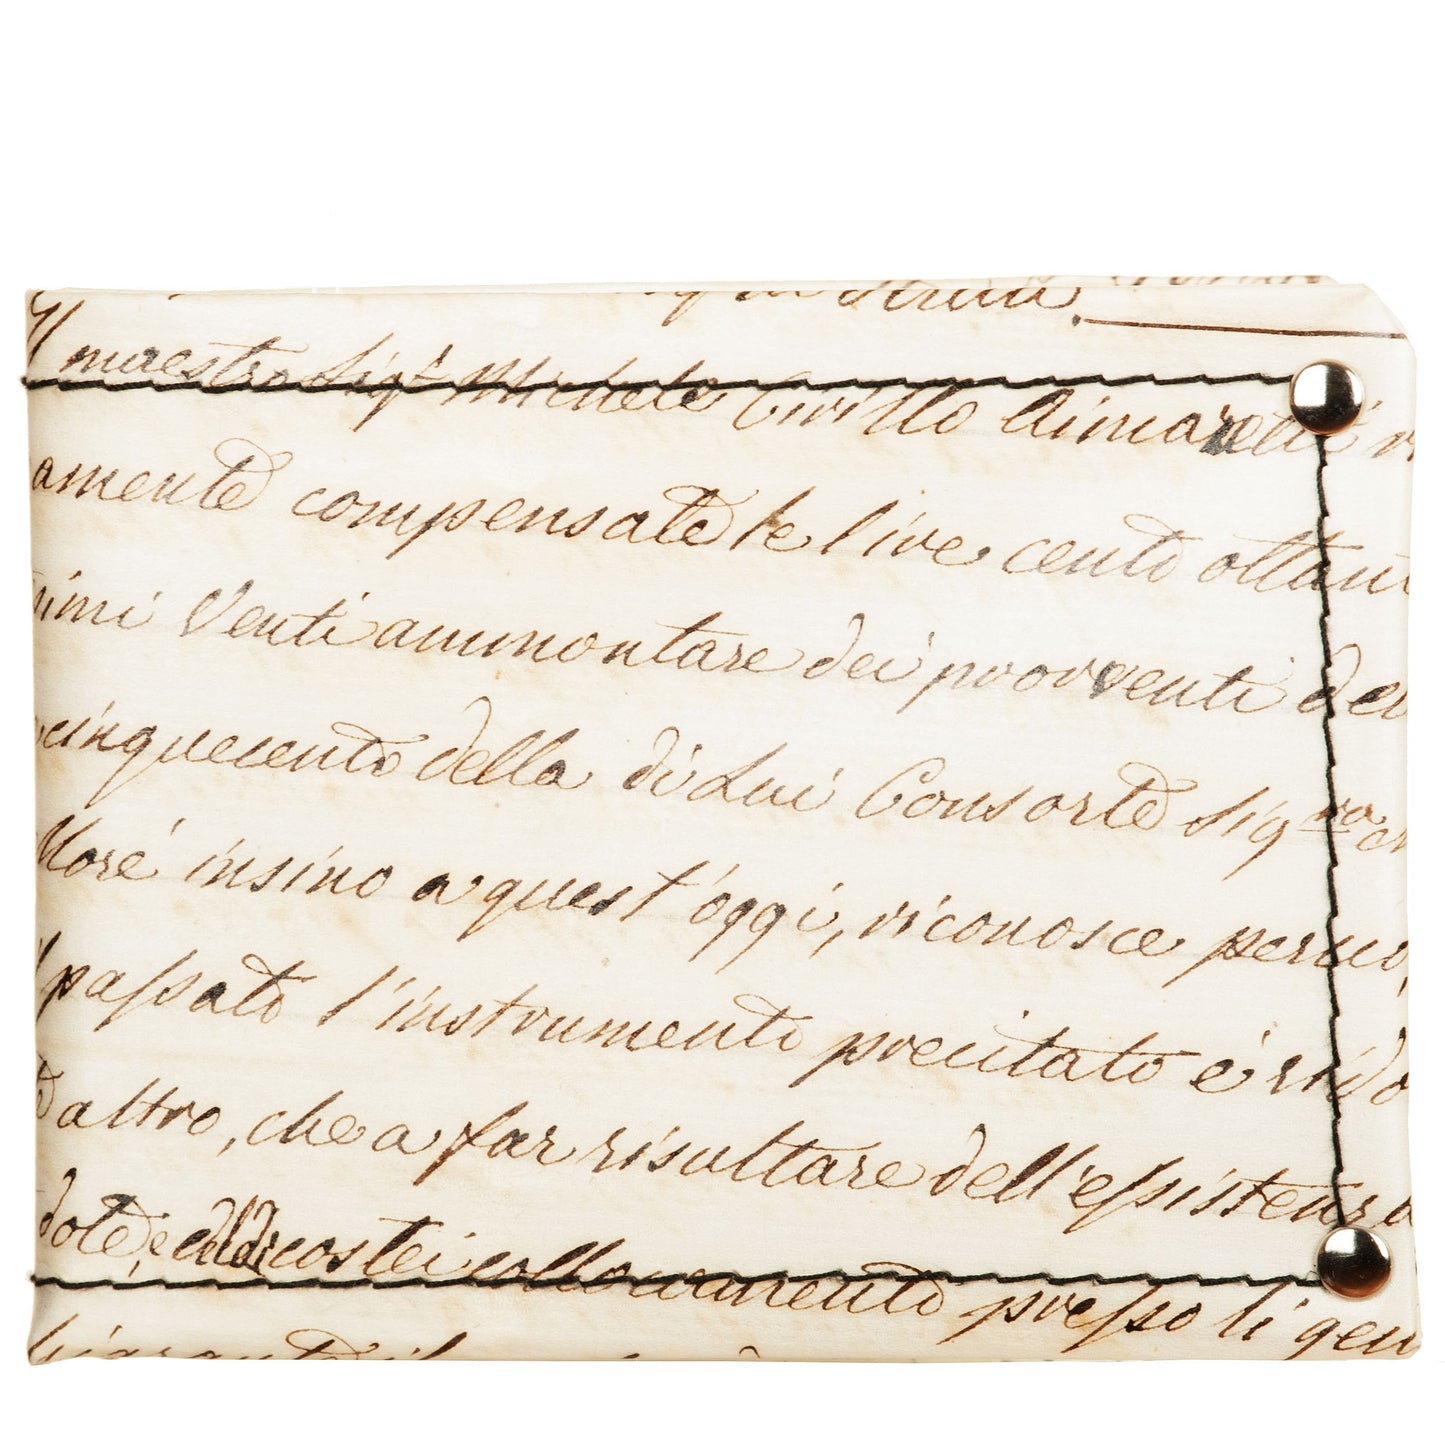 Il maestro Sigr Michele Cirillo Aimaretti
amente compensate le lire cento ottant
nimi Venti ammontare dei provventi del
cinquecento della di Lui Consorte Sigra
Moré insino a quest'oggi, riconosce
passato l'instrumento precitato é
altro, che a far risultare dell'essistenza
dote, e di costei collocamento presso li gen